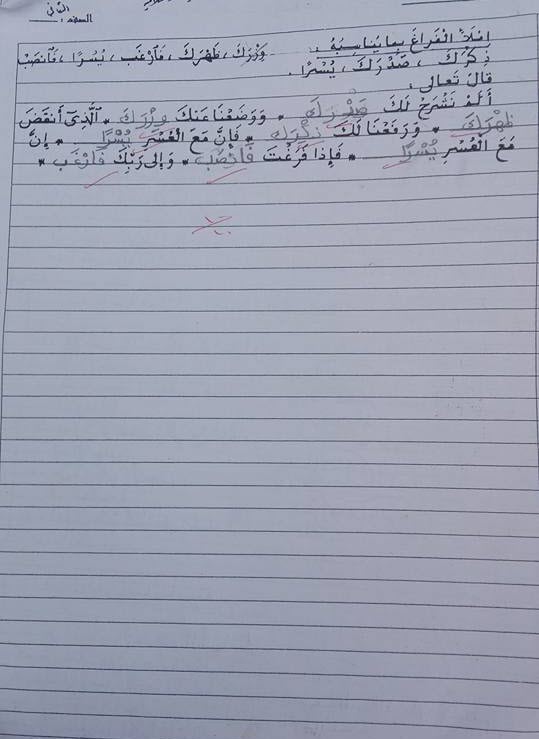 الصف:
املأ الفراغ بما يناسبه :
وِزْرَكَ ، ظَهْرَكَ ، فَارْغَب ، يُسْرًا ، فَانْصَب
ذِكْرَكَ ، صَدْرَكَ ، يُسْرًا .
قال تعالى :
أَلَمْ نَشْرَحْ لَكَ صَدْرَكَ * وَوَضَعْنَا عَنْكَ وِزْرَكَ * الَّذِي أَنْقَضَ
ظَهْرَكَ * وَرَفَعْنَا لَكَ ذِكْرَكَ * فَإِنَّ مَعَ الْعُسْرِ يُسْرًا * إِنَّ
مَعَ الْعُسْرِ يُسْرًا * فَإِذَا فَرَغْتَ فَانْصَبْ * وَإِلَى رَبِّكَ فَارْغَب *